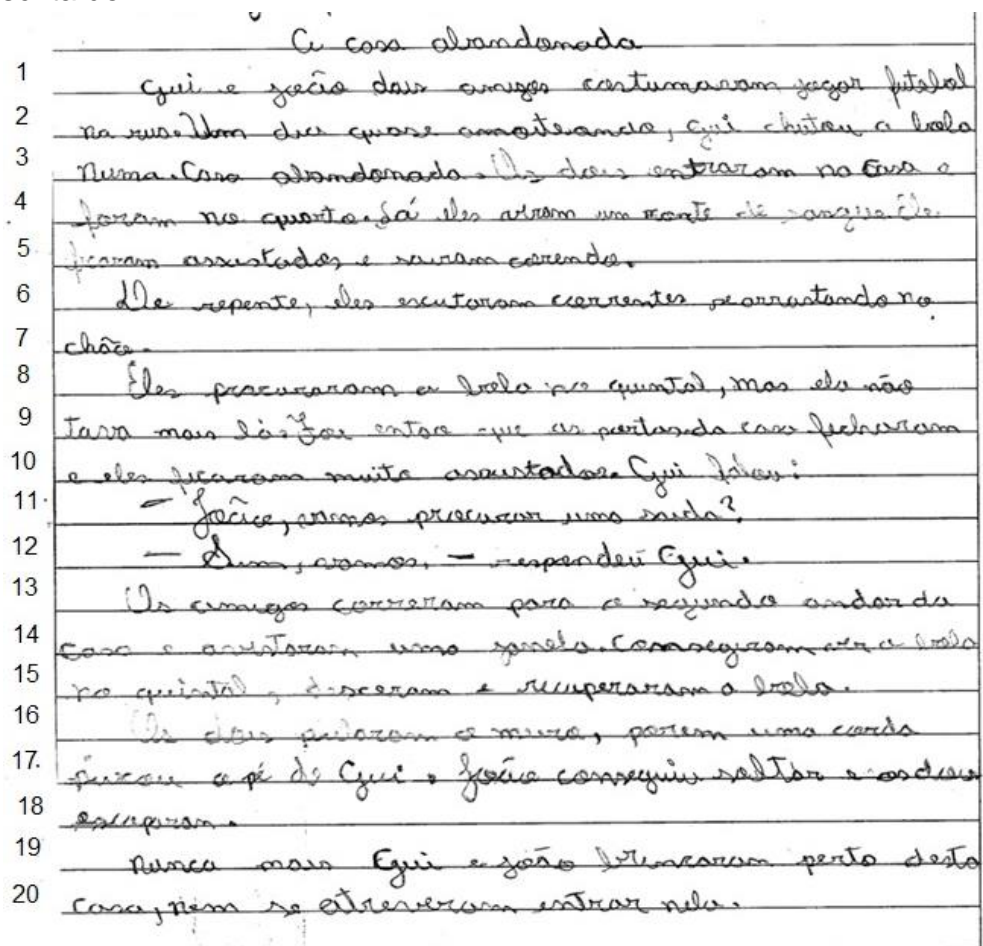 A casa abandonada
1 Gui e João dois amigos costumavam jogar futebol
2 na rua. Um dia quase anoitecendo, Gui chutou a bola
3 Numa. Casa abandonada. Os dois entraram na casa e
4 foram no quarto. Lá eles viram um monte de sangue. Eles
5. ficaram assustados e sairam corendo.
6 De repente, eles escutaram correntes se arrastando no
7 chão.
8 Eles procuraram a bola no quintal, mas ela não
9 tava mais lá. Foi entao que as portas da casa fecharam
10 e eles ficaram muito assustados. Gui falou:
11. — João, vamos procurar uma saida?
12 — Sim, vamos. — respondeu Gui.
13 Os amigos correram para o segundo andar da
14 casa e avistaram uma janela. Conseguiram ver a bola
15 no quintal, desceram e recuperaram a bola.
16 Os dois pularam o muro, porem uma corda
17. puxou o pé de Gui. João conseguiu soltar e os dois
18 escaparam.
19 Nunca mais Gui e João brincaram perto desta
20 casa, nem se atreveram entrar nela.